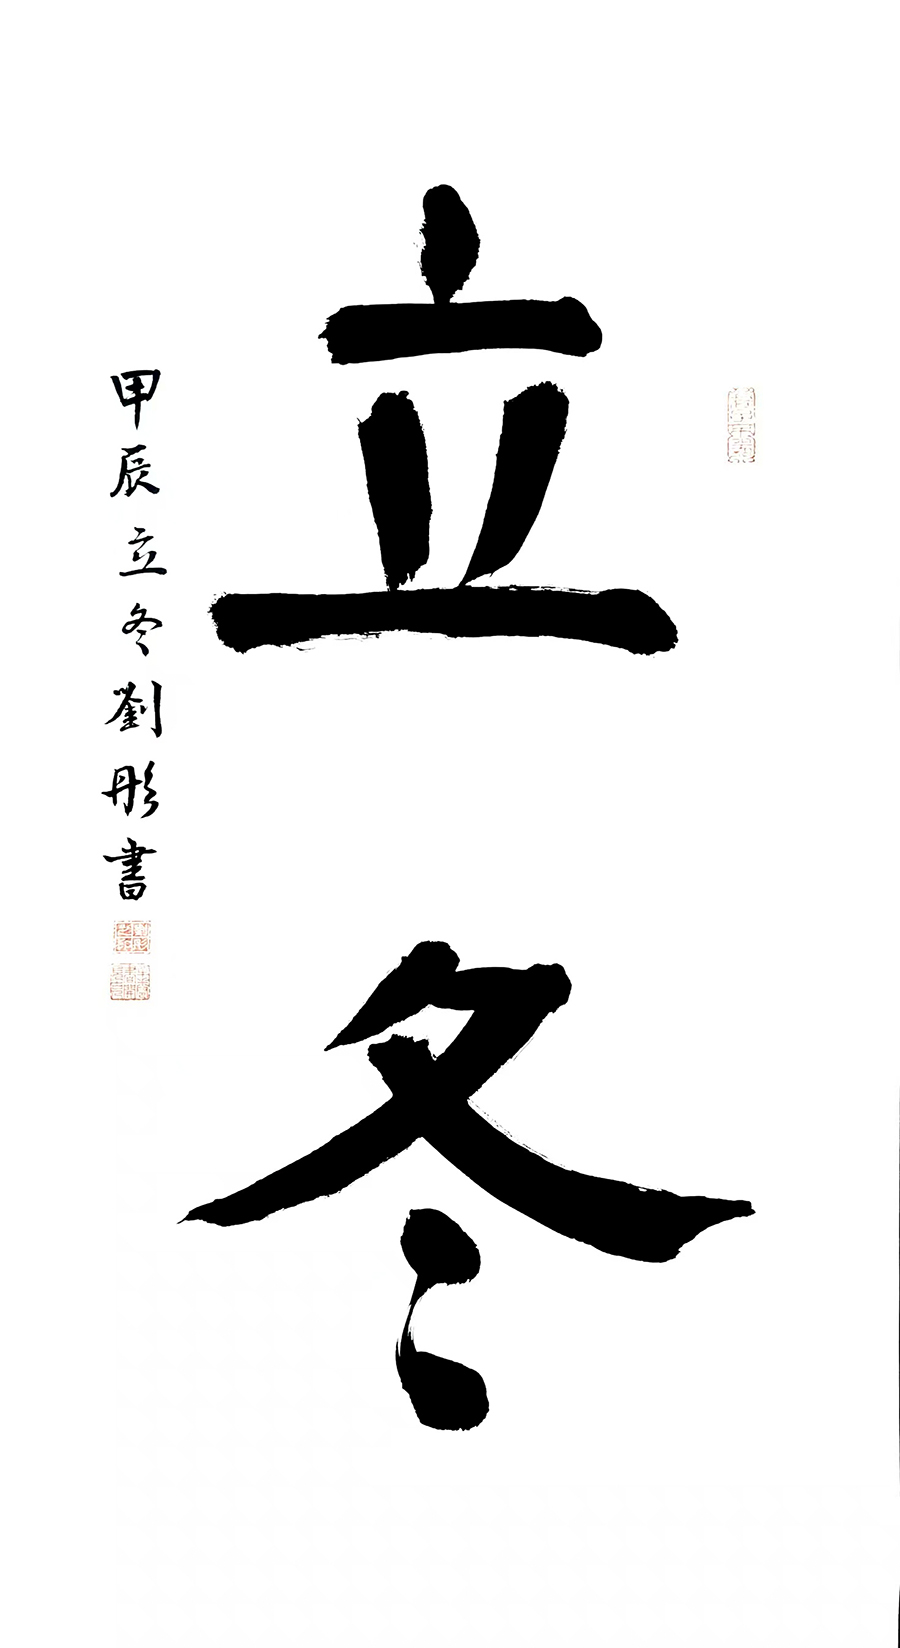 立冬
甲辰立冬劉彤書